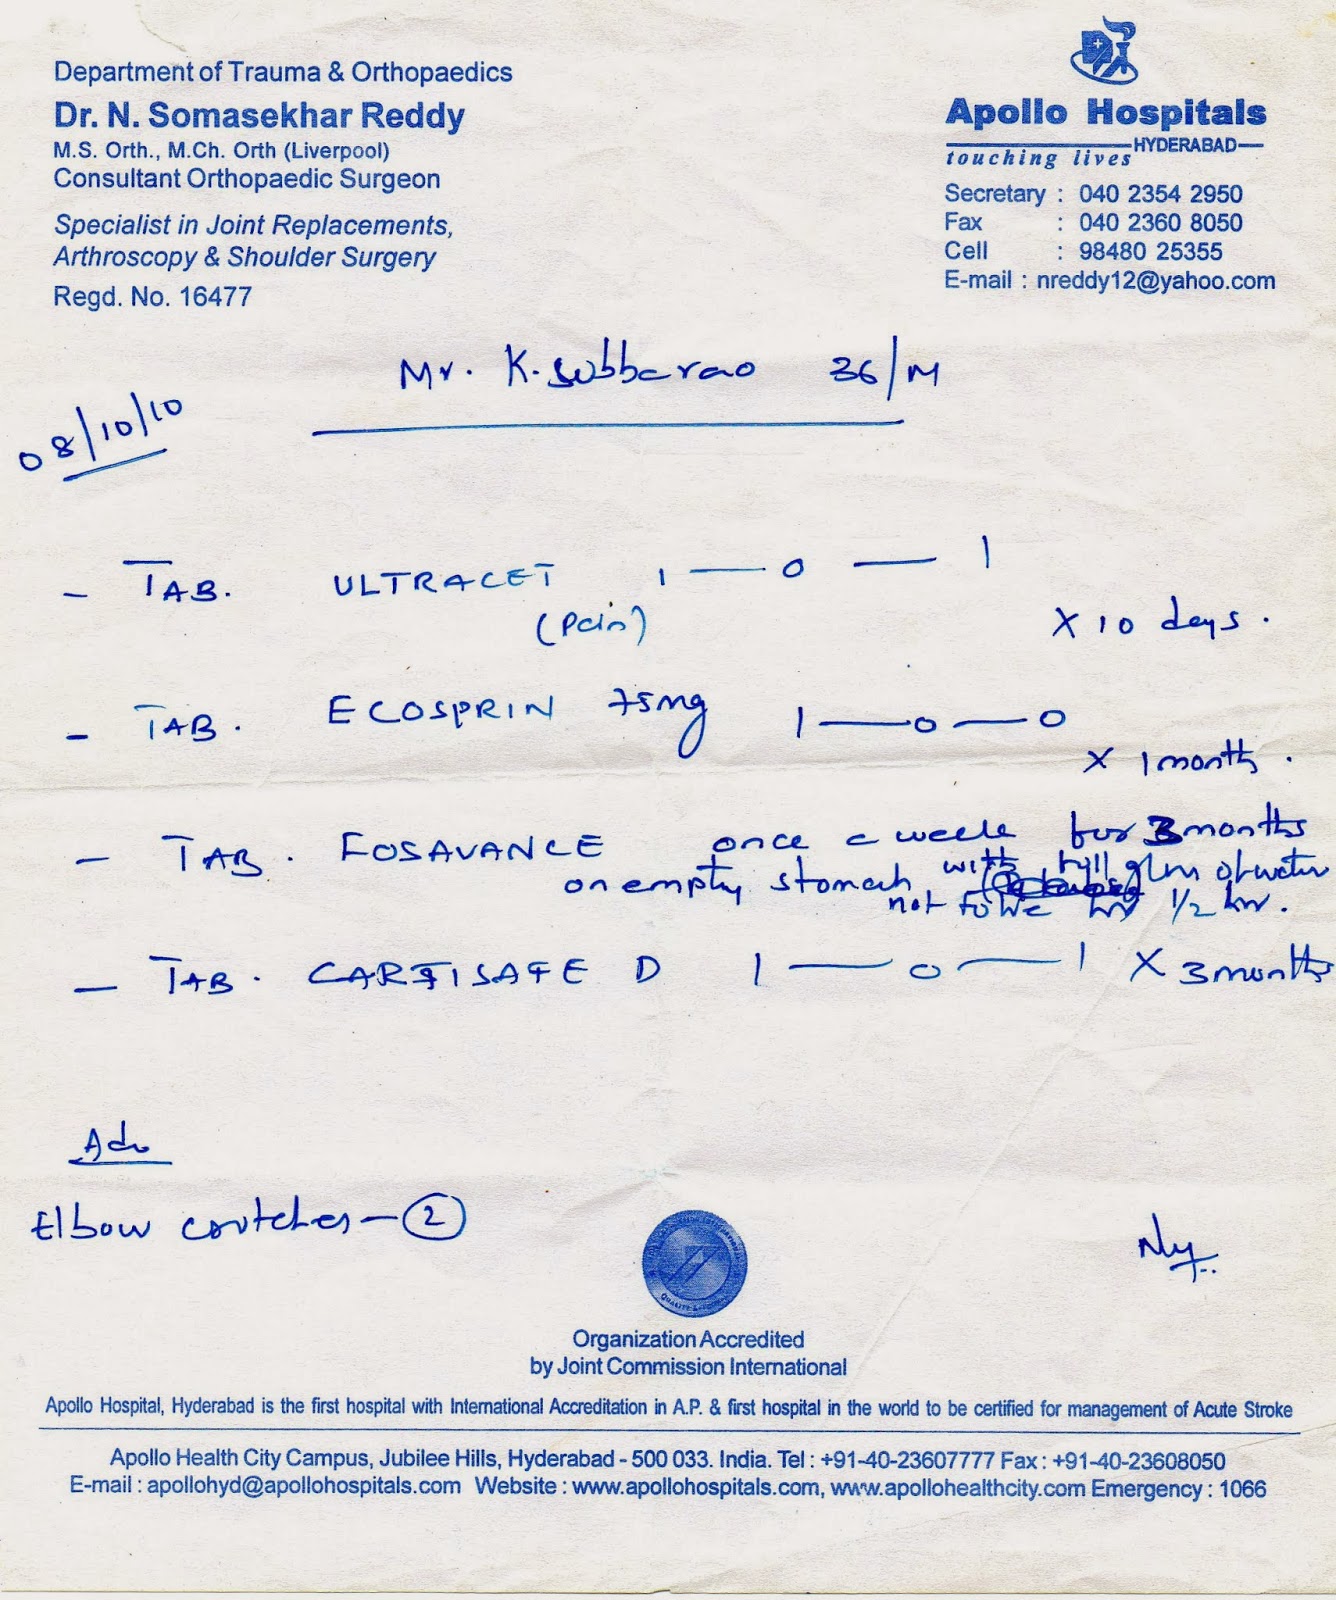 Department of Trauma & Orthopaedics
Dr. N. Somasekhar Reddy
M.S. Orth., M.Ch. Orth (Liverpool)
Consultant Orthopaedic Surgeon
Specialist in Joint Replacements,
Arthroscopy & Shoulder Surgery
Regd. No. 16477
Apollo Hospitals
HYDERABAD
touching lives
Secretary : 040 2354 2950
Fax : 040 2360 8050
Cell : 98480 25355
E-mail : nreddy12@yahoo.com
Mr. K. Subbarao 36/M
08/10/10
- TAB. ULTRACET 1 — 0 — 1
(Pain) X 10 days.
- TAB. ECOSPRIN 75mg 1 — 0 — 0
X 1 month.
- TAB. FOSAVANCE once a week for 3 months
on empty stomach with full of water
not to 1/2 hr.
- TAB. CARTISAFE D 1 — 0 — 1 X 3 months
Adv
Elbow crutches - 2
Organization Accredited
by Joint Commission International
Apollo Hospital, Hyderabad is the first hospital with International Accreditation in A.P. & first hospital in the world to be certified for management of Acute Stroke
Apollo Health City Campus, Jubilee Hills, Hyderabad - 500 033. India. Tel : +91-40-23607777 Fax : +91-40-23608050
E-mail : apollohyd@apollohospitals.com Website : www.apollohospitals.com, www.apollohealthcity.com Emergency : 1066